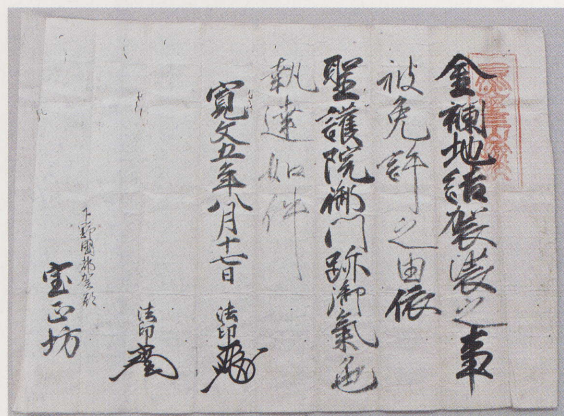 金襴地結袈裟之事
被免許之由依
聖護院御門跡御氣色
執達如件
寛文五年八月十七日 法印
法印
下野國都賀郡
宝正坊